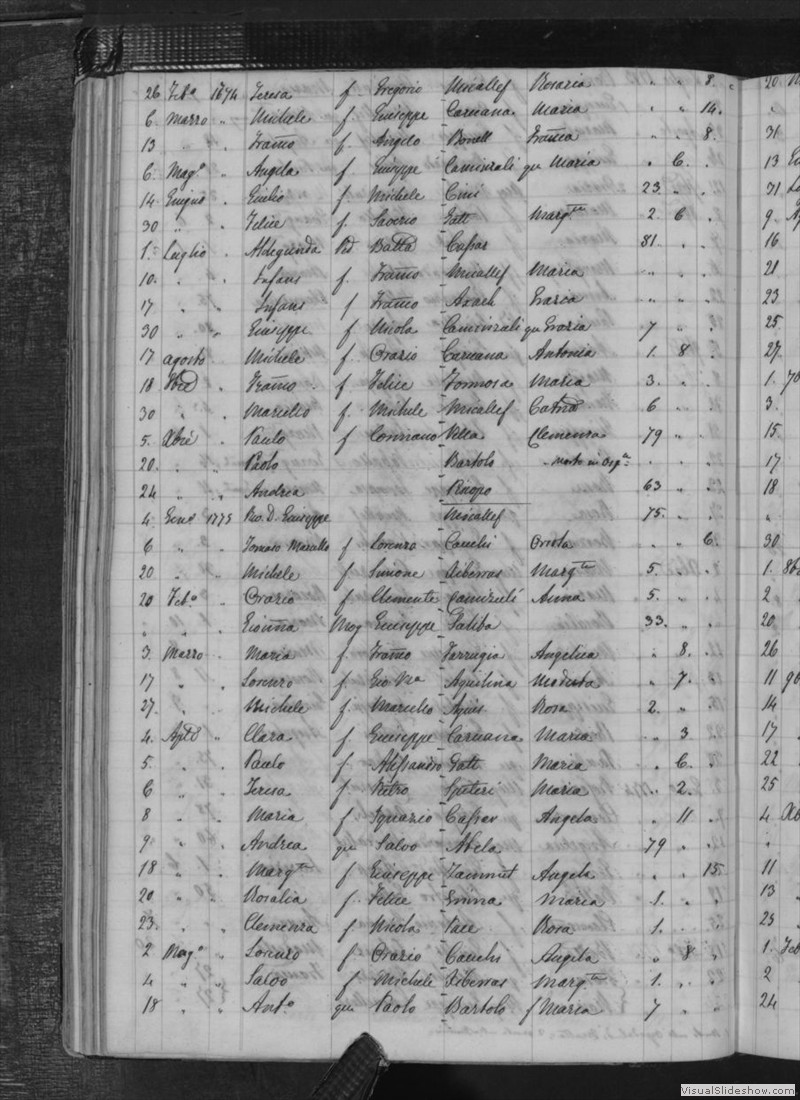 26 Feb.o 1774 Teresa f. Gregorio Micallef Rosaria " " 8.
6. Marzo " Michele f. Giuseppe Caruana Maria " " 14.
13 " . Franco f. Angelo Bonell Franca " " 8.
6. Mag.o " Angela f. Giuseppe Camenzuli qm Maria . 6. .
14. Giugno " Giulio f. Michele Cini 23. " .
30 " . Felice f. Saverio Gatt Margta 2. 6 .
1. Luglio . Aldegunda Rd Batta Cassar 81 . .
10. " . Infans f. Franco Micallef Maria " . .
17 " " Infans f Franco Axach Grazia " " "
30 " " Giuseppe f Nicola Camenzuli qm Grazia 7 " .
17 agosto . Michele f Orazio Caruana Antonia 1. 8 .
18 . Franco . f. Felice Formosa Maria 3. . .
30 " . Marcello f. Michele Micallef Catna 6 " .
5. Xbre " Paulo f Vella Clemenza 79 " .
20. " " Paolo Bartolo Morto in . . .
24 " " Andrea 63 " .
4. Gen.o 1775 Rev. D. Giuseppe Micallef 75. " .
6 " " Tomaso Marcello f Lorenzo Cauchi . . 6.
20 " " Michele f Simone Xiberras Margta 5. " .
20 Feb.o " Orazio f Clemente Camizuli Anna 5. " .
" " " Giovna Mog Giuseppe Saliba 33. . .
3. Marzo . Maria f. Franco Farrugia Angelica " 8. .
17 " . Lorenzo f. Gio Ma Aquilina Modesta " 7. .
27. " " Michele f. Marcello Agius Rosa 2. " .
4. Aple " Clara f Giuseppe Caruana Maria . 3 .
5. " . Paulo f. Alessandro Gatt Maria . 6. .
6 " " Teresa f Pietro Spiteri Maria " 2. .
8 " " Maria f Ignazio Cassar Angela . 11 .
9. " . Andrea qm Salvo Abela 79 . .
18 " " Margta f Giuseppe Zammit Angela . . 15.
20 " " Rosalia f. Felice Maria 1. . .
23. " . Clemenza f Nicola Pace Rosa 1. . .
2 Mag.o " Lorenzo f Orazio Cauchi Angela " 8 .
4 " " Salvo f Michele Xiberras Margta 1. . .
18 " " Ant.o qm Paolo Bartolo f Maria 7 . .
20
31
13
31
9.
16
21
23
25
27.
1.
3.
15
17
18
30
1.
2
20.
26
11
14
17
22
25
4
11
13
23
1.
2
24
VisualSlideshow.com